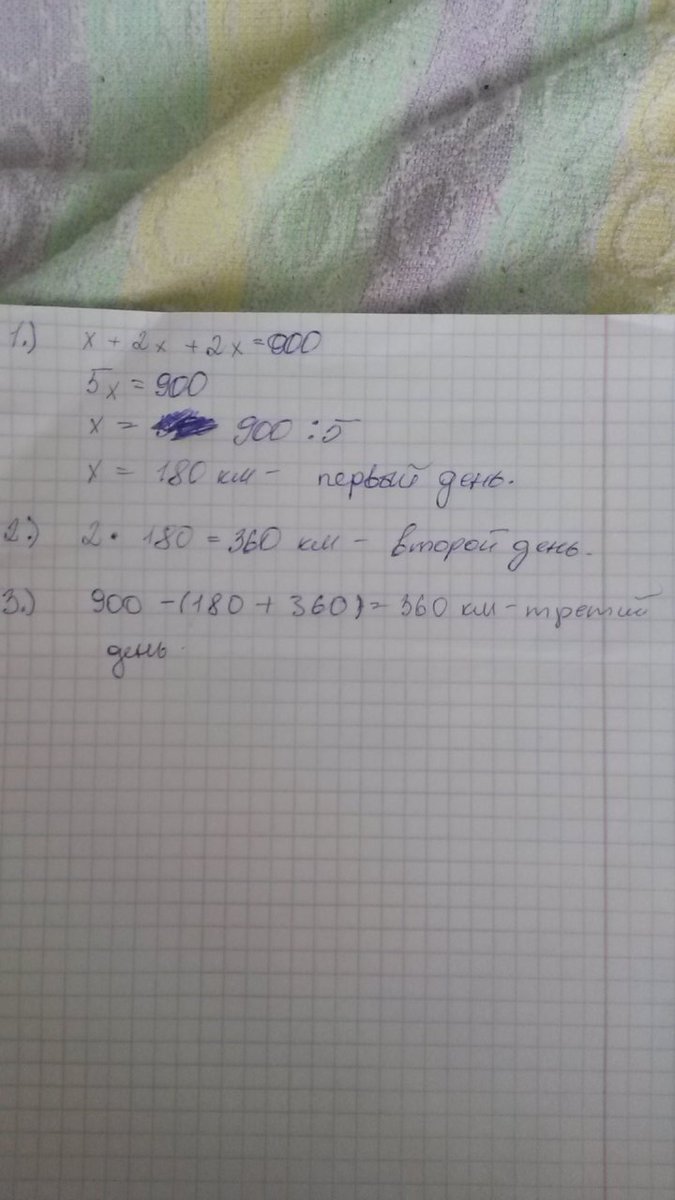 1.) x + 2x + 2x = 900
5x = 900
x = 900 : 5
x = 180 км - первый день.
2.) 2 · 180 = 360 км - второй день.
3.) 900 - (180 + 360) = 360 км - третий
день.